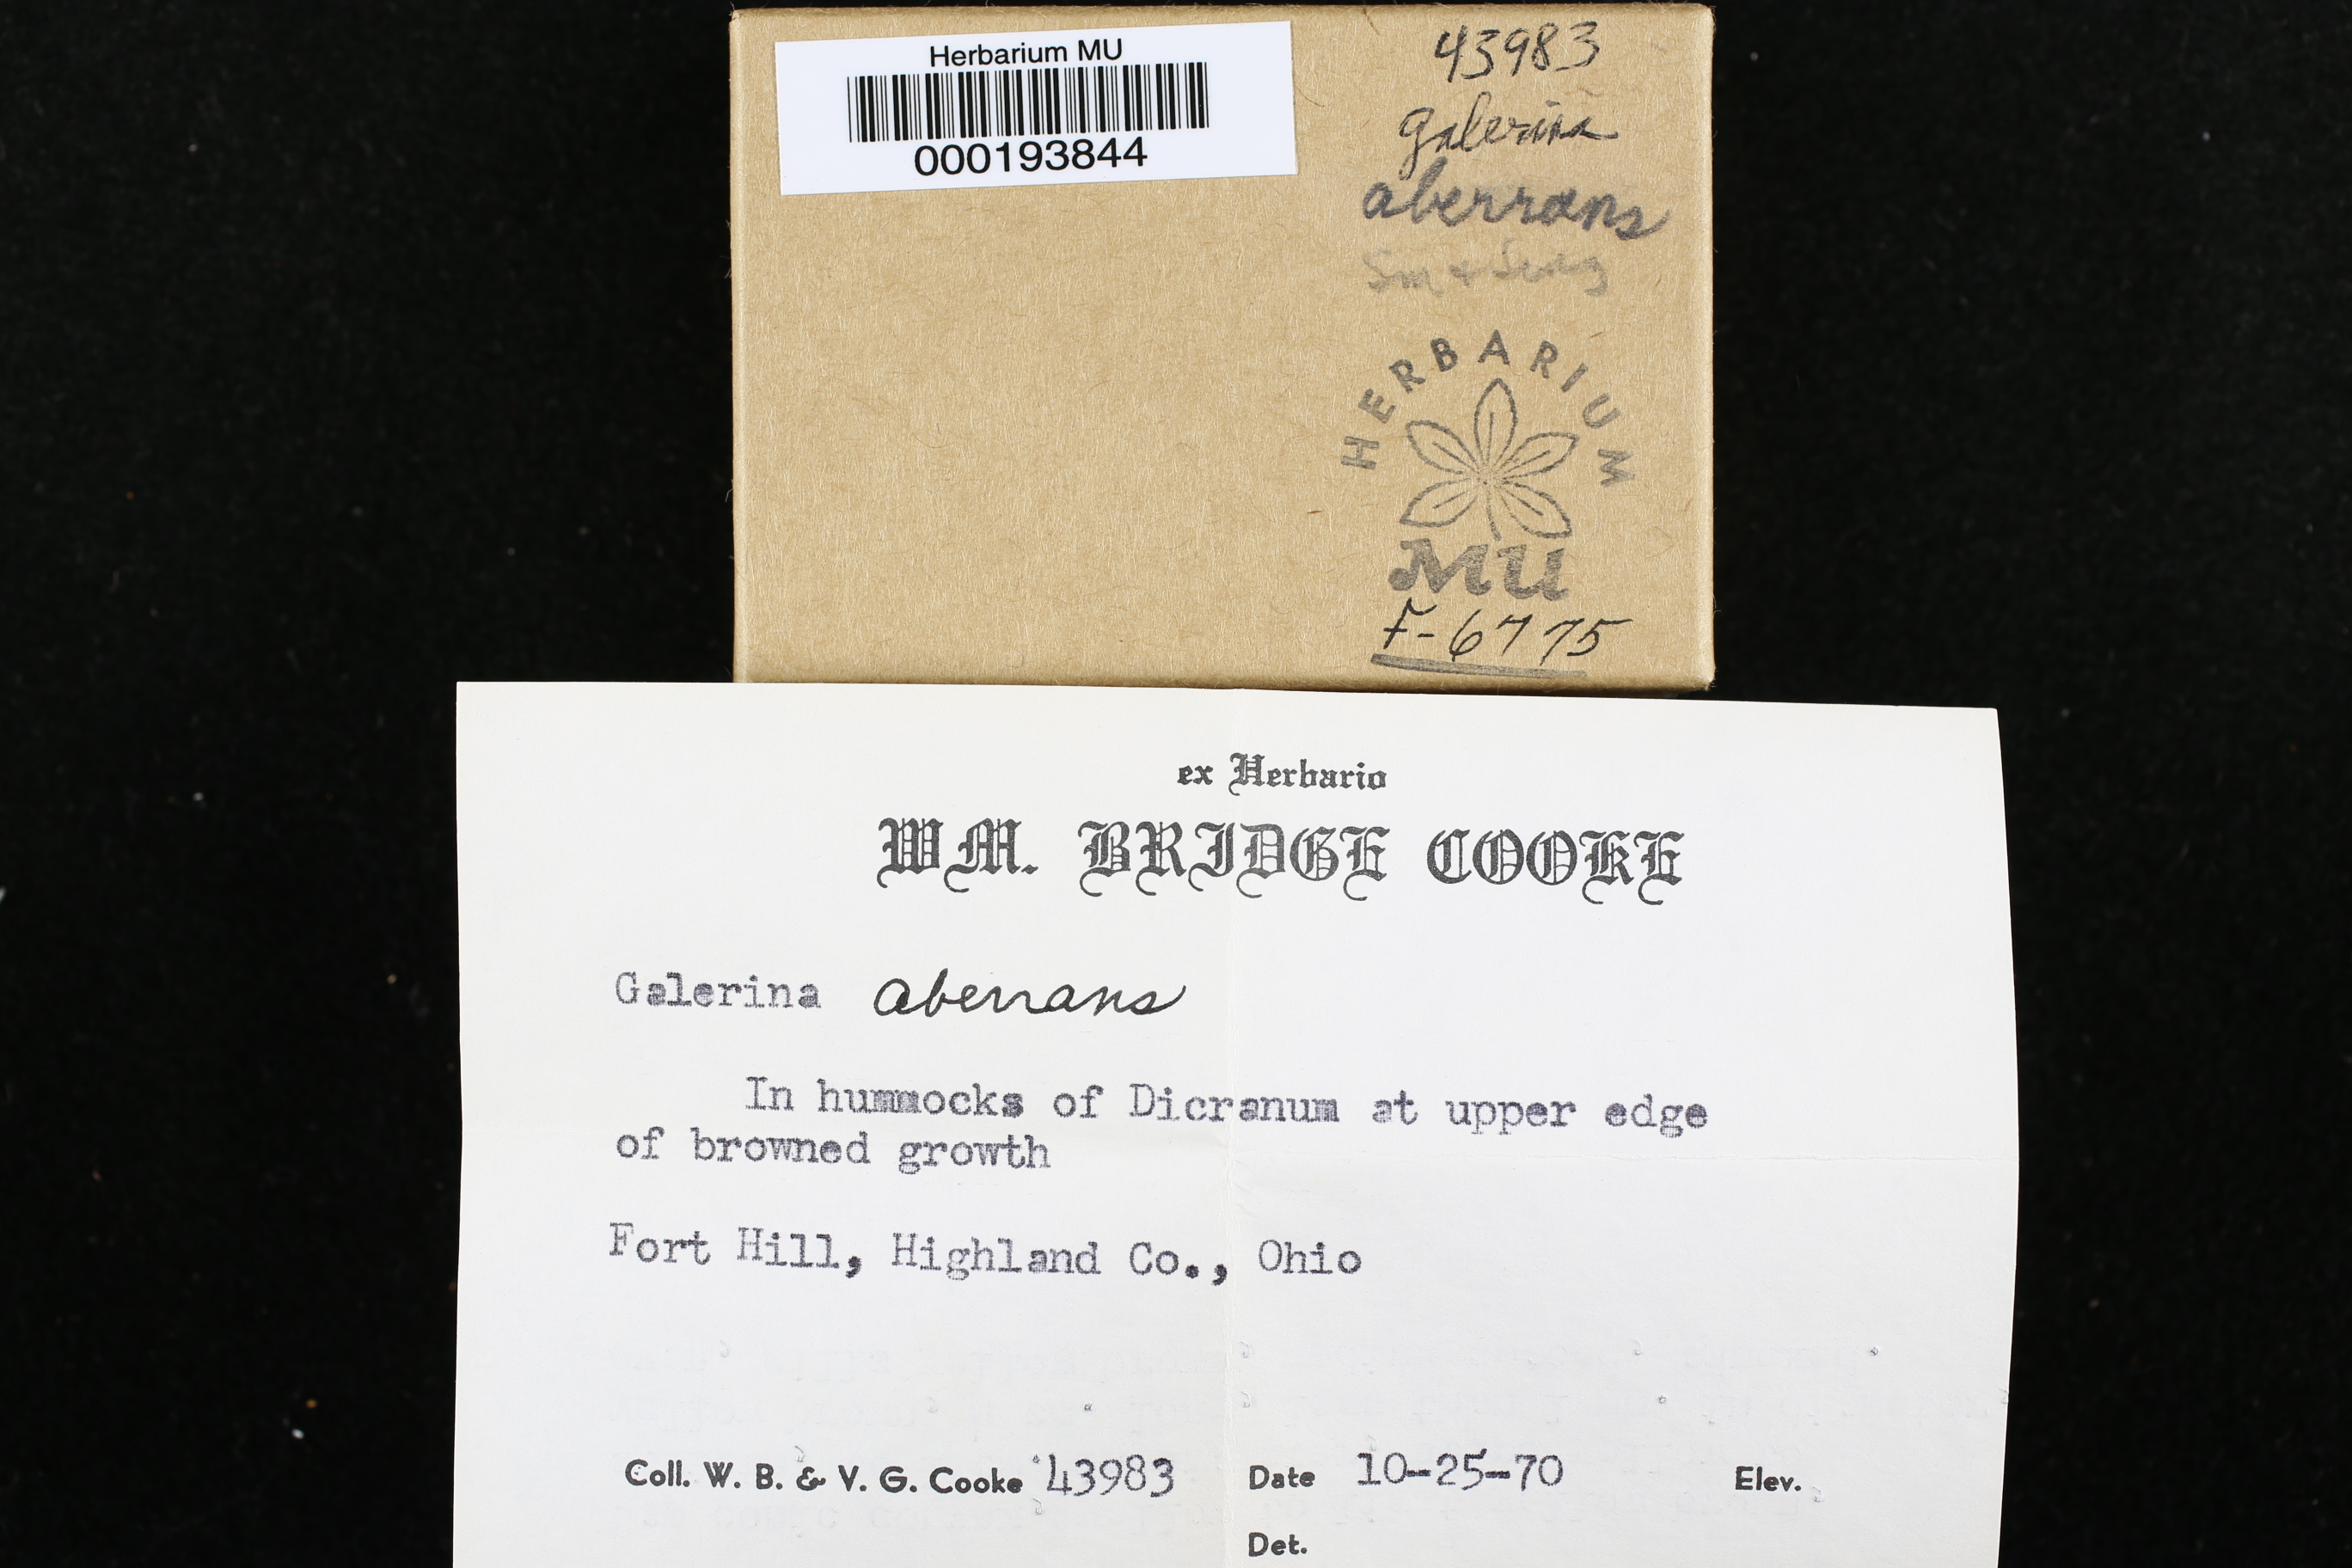 Herbarium MU
000193844
43983
Galerina
aberrans
Sm + Sing
HERBARIUM
MU
F-6775
ex Herbario
WM. BRIDGE COOKE
Galerina aberrans
In hummocks of Dicranum at upper edge
of browned growth
Fort Hill, Highland Co., Ohio
Coll. W. B. & V. G. Cooke 43983 Date 10-25-70 Elev.
Det.